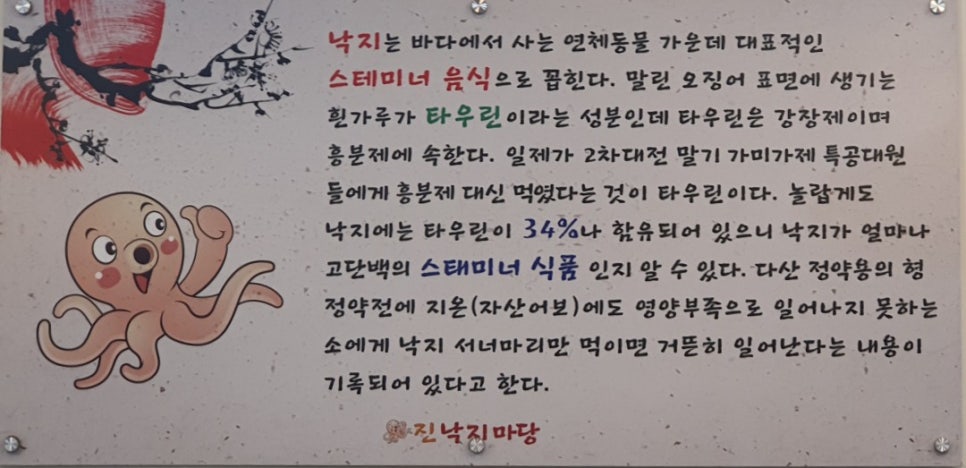 낙지는 바다에서 사는 연체동물 가운데 대표적인
스테미너 음식으로 꼽힌다. 말린 오징어 표면에 생기는
흰가루가 타우린이라는 성분인데 타우린은 강창제이며
흥분제에 속한다. 일제가 2차대전 말기 가미가제 특공대원
들에게 흥분제 대신 먹였다는 것이 타우린이다. 놀랍게도
낙지에는 타우린이 34%나 함유되어 있으니 낙지가 얼마나
고단백의 스태미너 식품 인지 알 수 있다. 다산 정약용의 형
정약전에 지온(자산어보)에도 영양부족으로 일어나지 못하는
소에게 낙지 서너마리만 먹이면 거뜬히 일어난다는 내용이
기록되어 있다고 한다.
진낙지마당